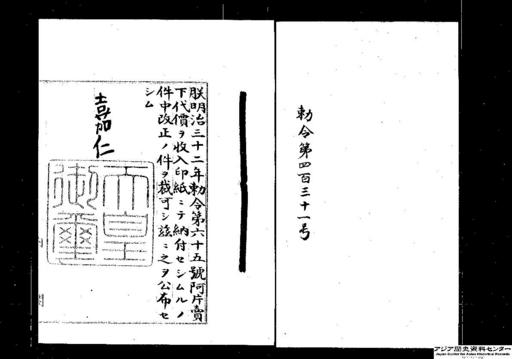 勅令第四百三十一号
朕明治三十二年勅令第六十五號阿片賣
下代價ヲ收入印紙ニテ納付セシムルノ
件中改正ノ件ヲ裁可シ茲ニ之ヲ公布セ
シム
嘉仁
天皇
御璽
アジア歴史資料センター
Japan Center for Asian Historical Records